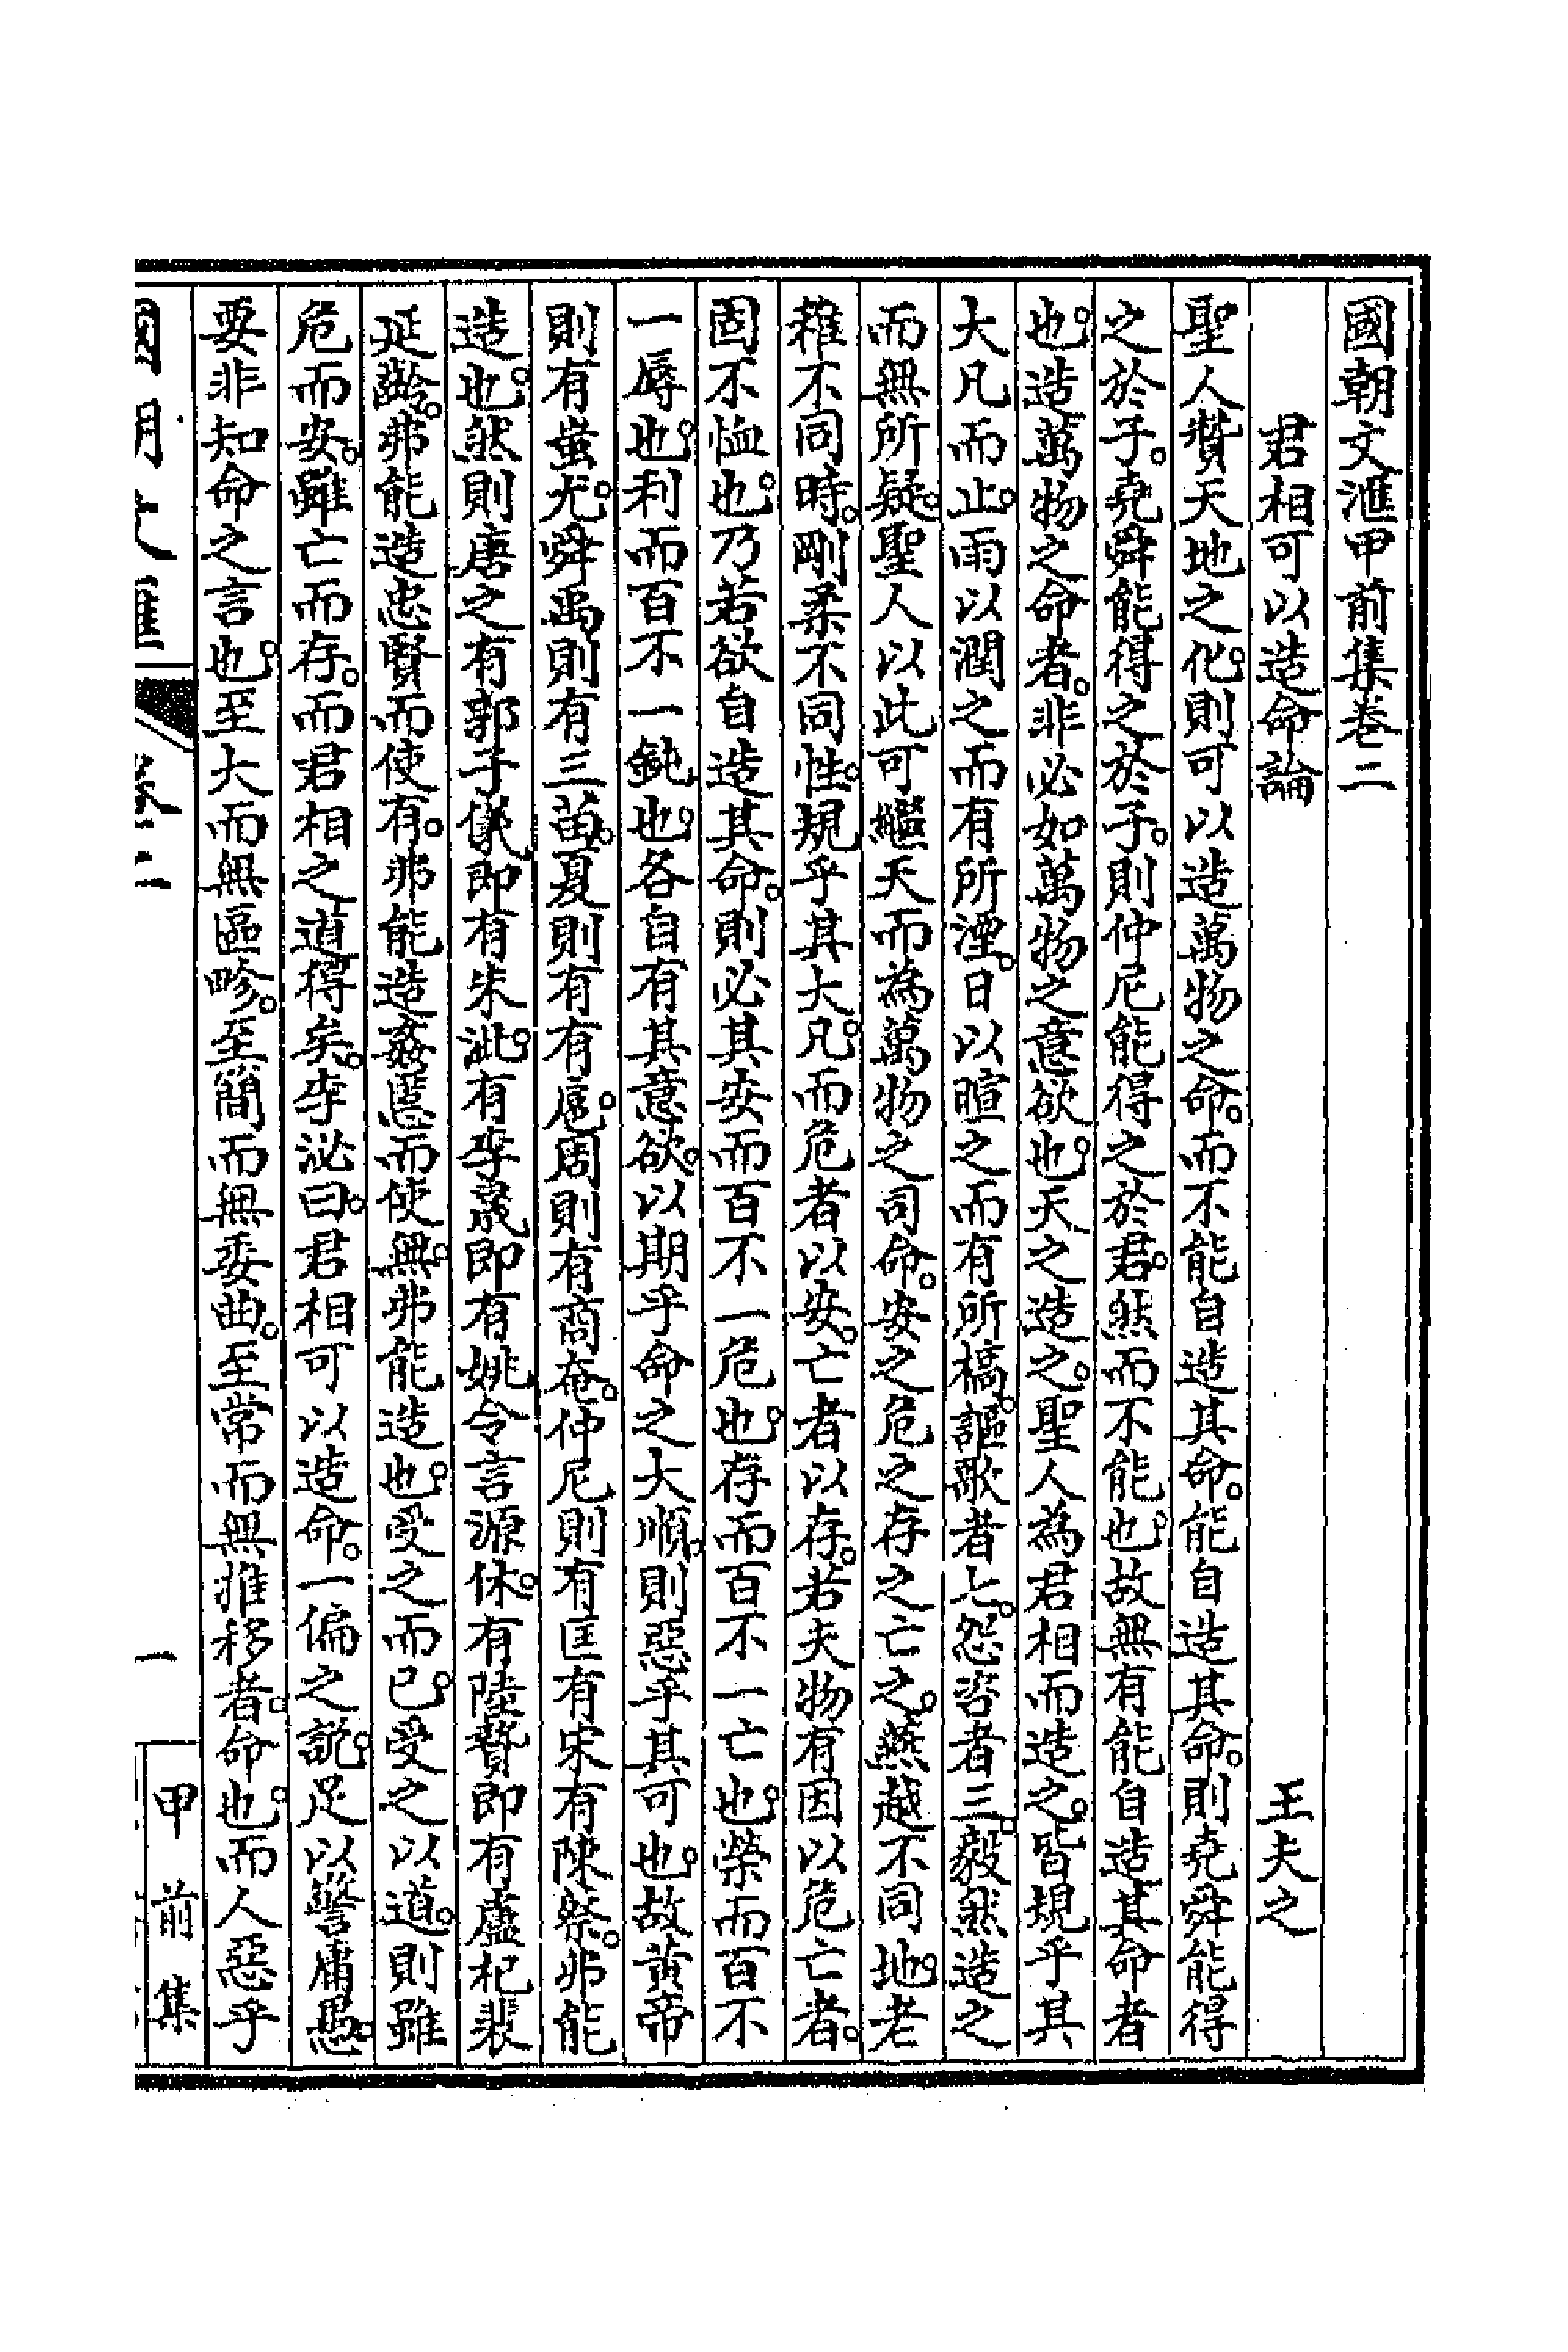 國朝文滙甲前集卷二
君相可以造命論　王夫之
聖人贊天地之化。則可以造萬物之命。而不能自造其命。能自造其命。則堯舜能得
之於子。堯舜能得之於子。則仲尼能得之於君。然而不能也。故無有能自造其命者
也。造萬物之命者。非必如萬物之意欲也。天之造之。聖人為君相而造之。皆規乎其
大凡而止。雨以潤之而有所湮。日以暄之而有所槁。謳歌者七。怨咨者三。毅然造之
而無所疑。聖人以此可繼天而為萬物之司命。安之危之存之亡之。燕越不同地。老
稚不同時。剛柔不同性。規乎其大凡。而危者以安。亡者以存。若夫物有因以危亡者。
固不恤也。乃若欲自造其命。則必其安而百不一危也。存而百不一亡也。榮而百不
一辱也。利而百不一鈍也。各自有其意欲。以期乎命之大順。則惡乎其可也。故黃帝
則有蚩尤。舜禹則有三苗。夏則有有扈。周則有商奄。仲尼則有匡有宋有陳蔡。弗能
造也。然則唐之有郭子儀即有朱泚。有李晟即有姚令言源休。有陸贄即有盧杞裴
延齡。弗能造忠賢而使有。弗能造姦慝而使無。弗能造也。受之而已。受之以道。則雖
危而安。雖亡而存。而君相之道得矣。李泌曰。君相可以造命。一偏之說。足以警庸愚。
要非知命之言也。至大而無區畛。至簡而無委曲。至常而無推移者。命也。而人惡乎
國朝文匯
卷二
一
甲前集